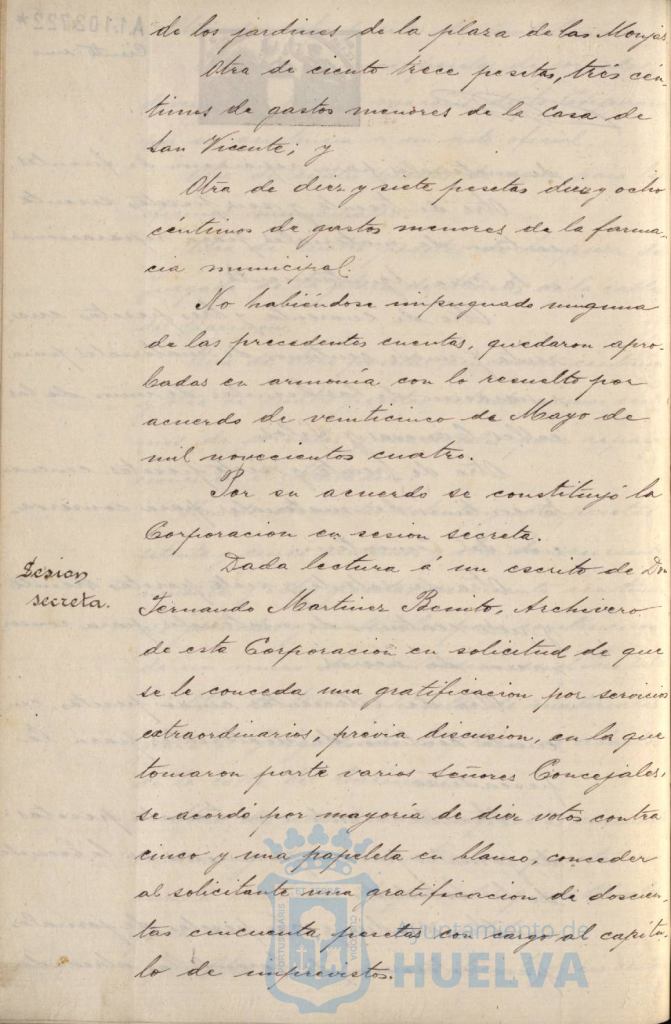 de los jardines de la plaza de las Monjas
Otra de ciento trece pesetas, tres cén-
timos de gastos menores de la Casa de
San Vicente; y
Otra de diez y siete pesetas diez y ocho
céntimos de gastos menores de la farma-
cia municipal.
No habiéndose impugnado ninguna
de las precedentes cuentas, quedaron apro-
badas en armonía con lo resuelto por
acuerdo de veinticinco de Mayo de
mil novecientos cuatro.
Por su acuerdo se constituyó la
Corporacion en sesion secreta.
Sesion
secreta.
Dada lectura á un escrito de Dn
Fernando Martinez Benito, Archivero
de esta Corporacion en solicitud de que
se le conceda una gratificacion por servicios
extraordinarios, prévia discusion, en la que
tomaron parte varios Señores Concejales,
se acordó por mayoría de diez votos contra
cinco y una papeleta en blanco, conceder
al solicitante una gratificacion de doscien-
tas cincuenta pesetas con cargo al capítu-
lo de imprevistos.
Ayuntamiento de
HUELVA